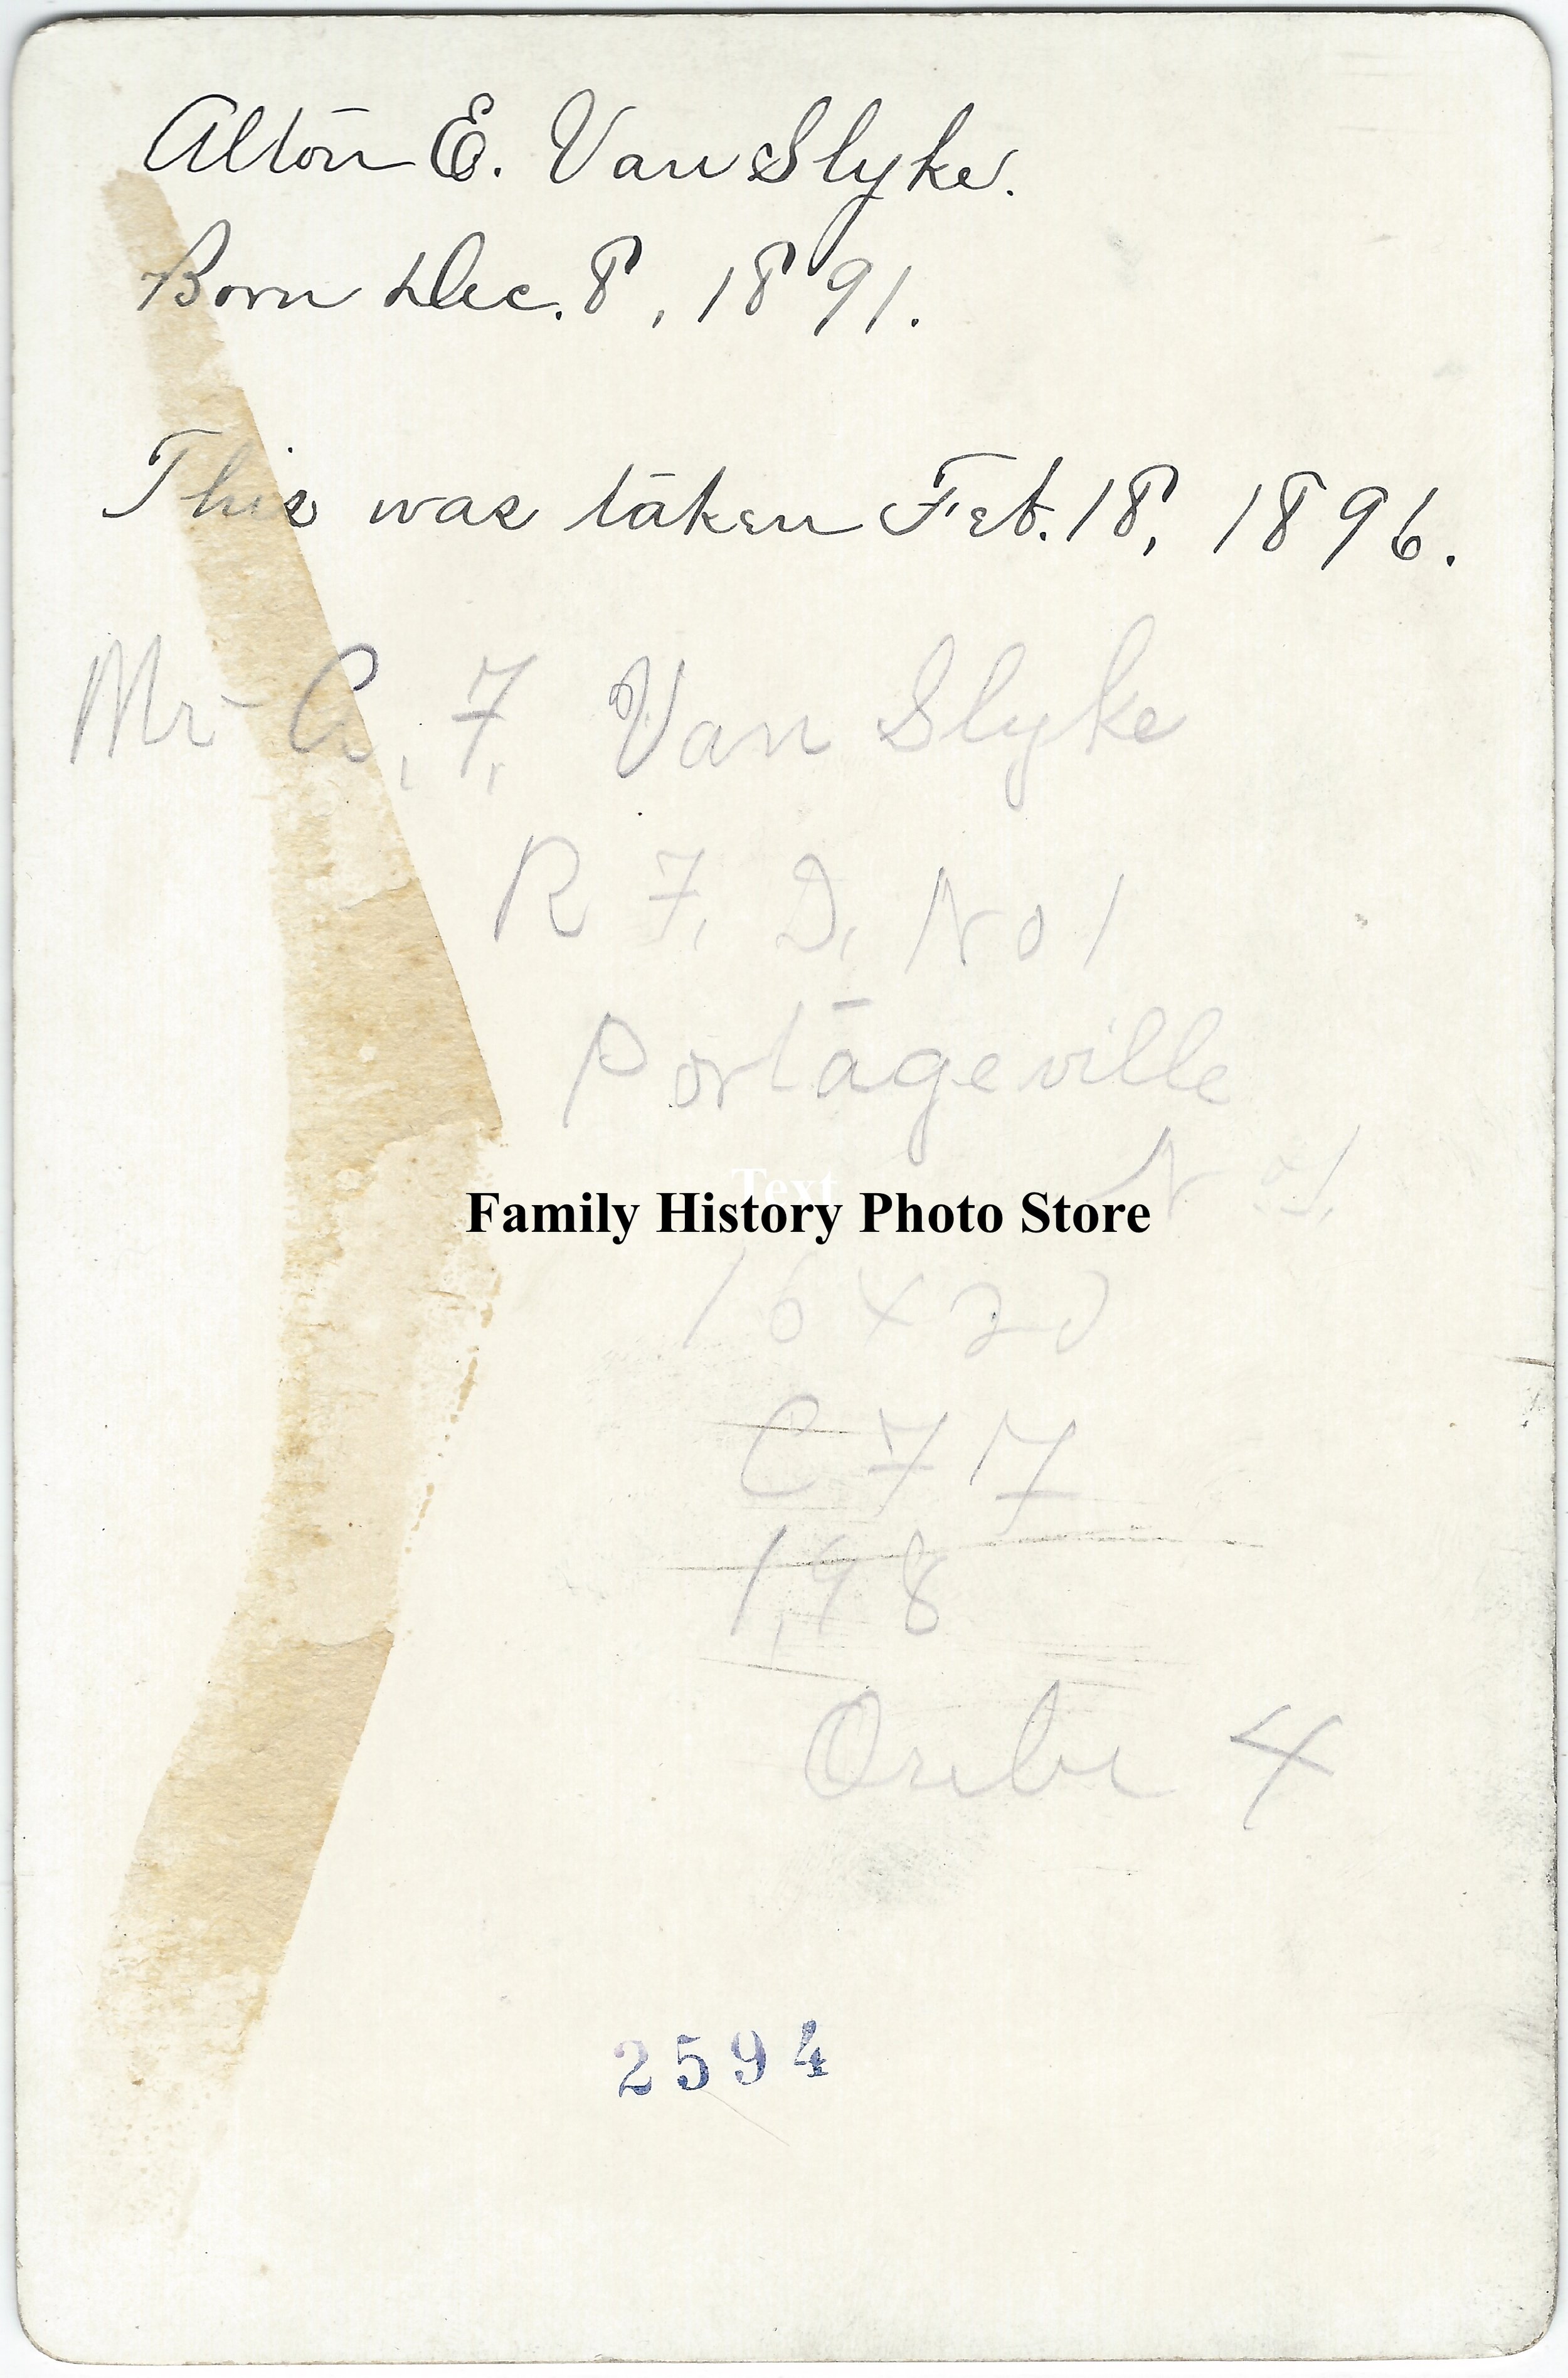 Alton E. Van Slyke.
Born Dec. 8, 1891.
This was taken Feb. 18, 1896.
Mr A, F, Van Slyke
R F, D, No 1
Portageville
N Y,
Text
Family History Photo Store
16 x 20
C 77
1,98
4
2594